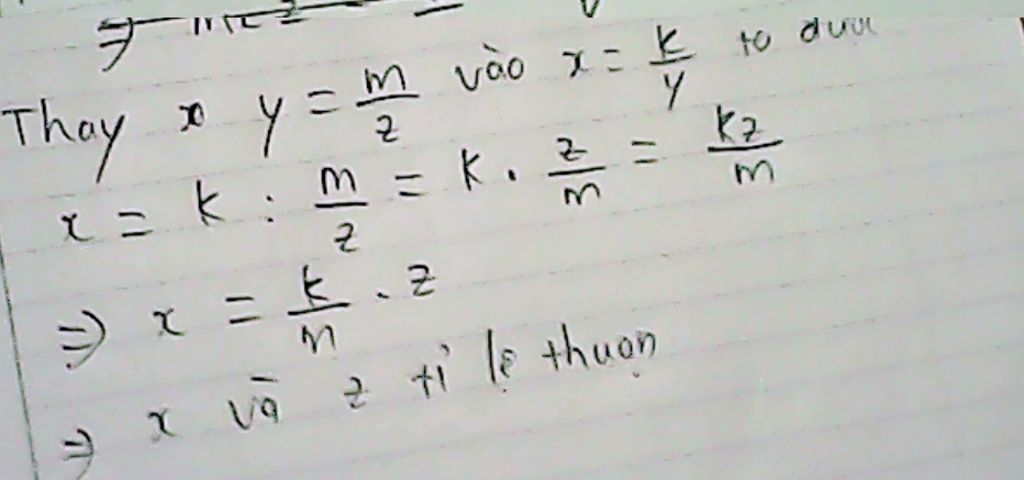 Thay y = m/z vào x = k/y ta được
x = k : m/z = k . z/m = kz/m
⇒ x = k/m . z
⇒ x và z tỉ lệ thuận